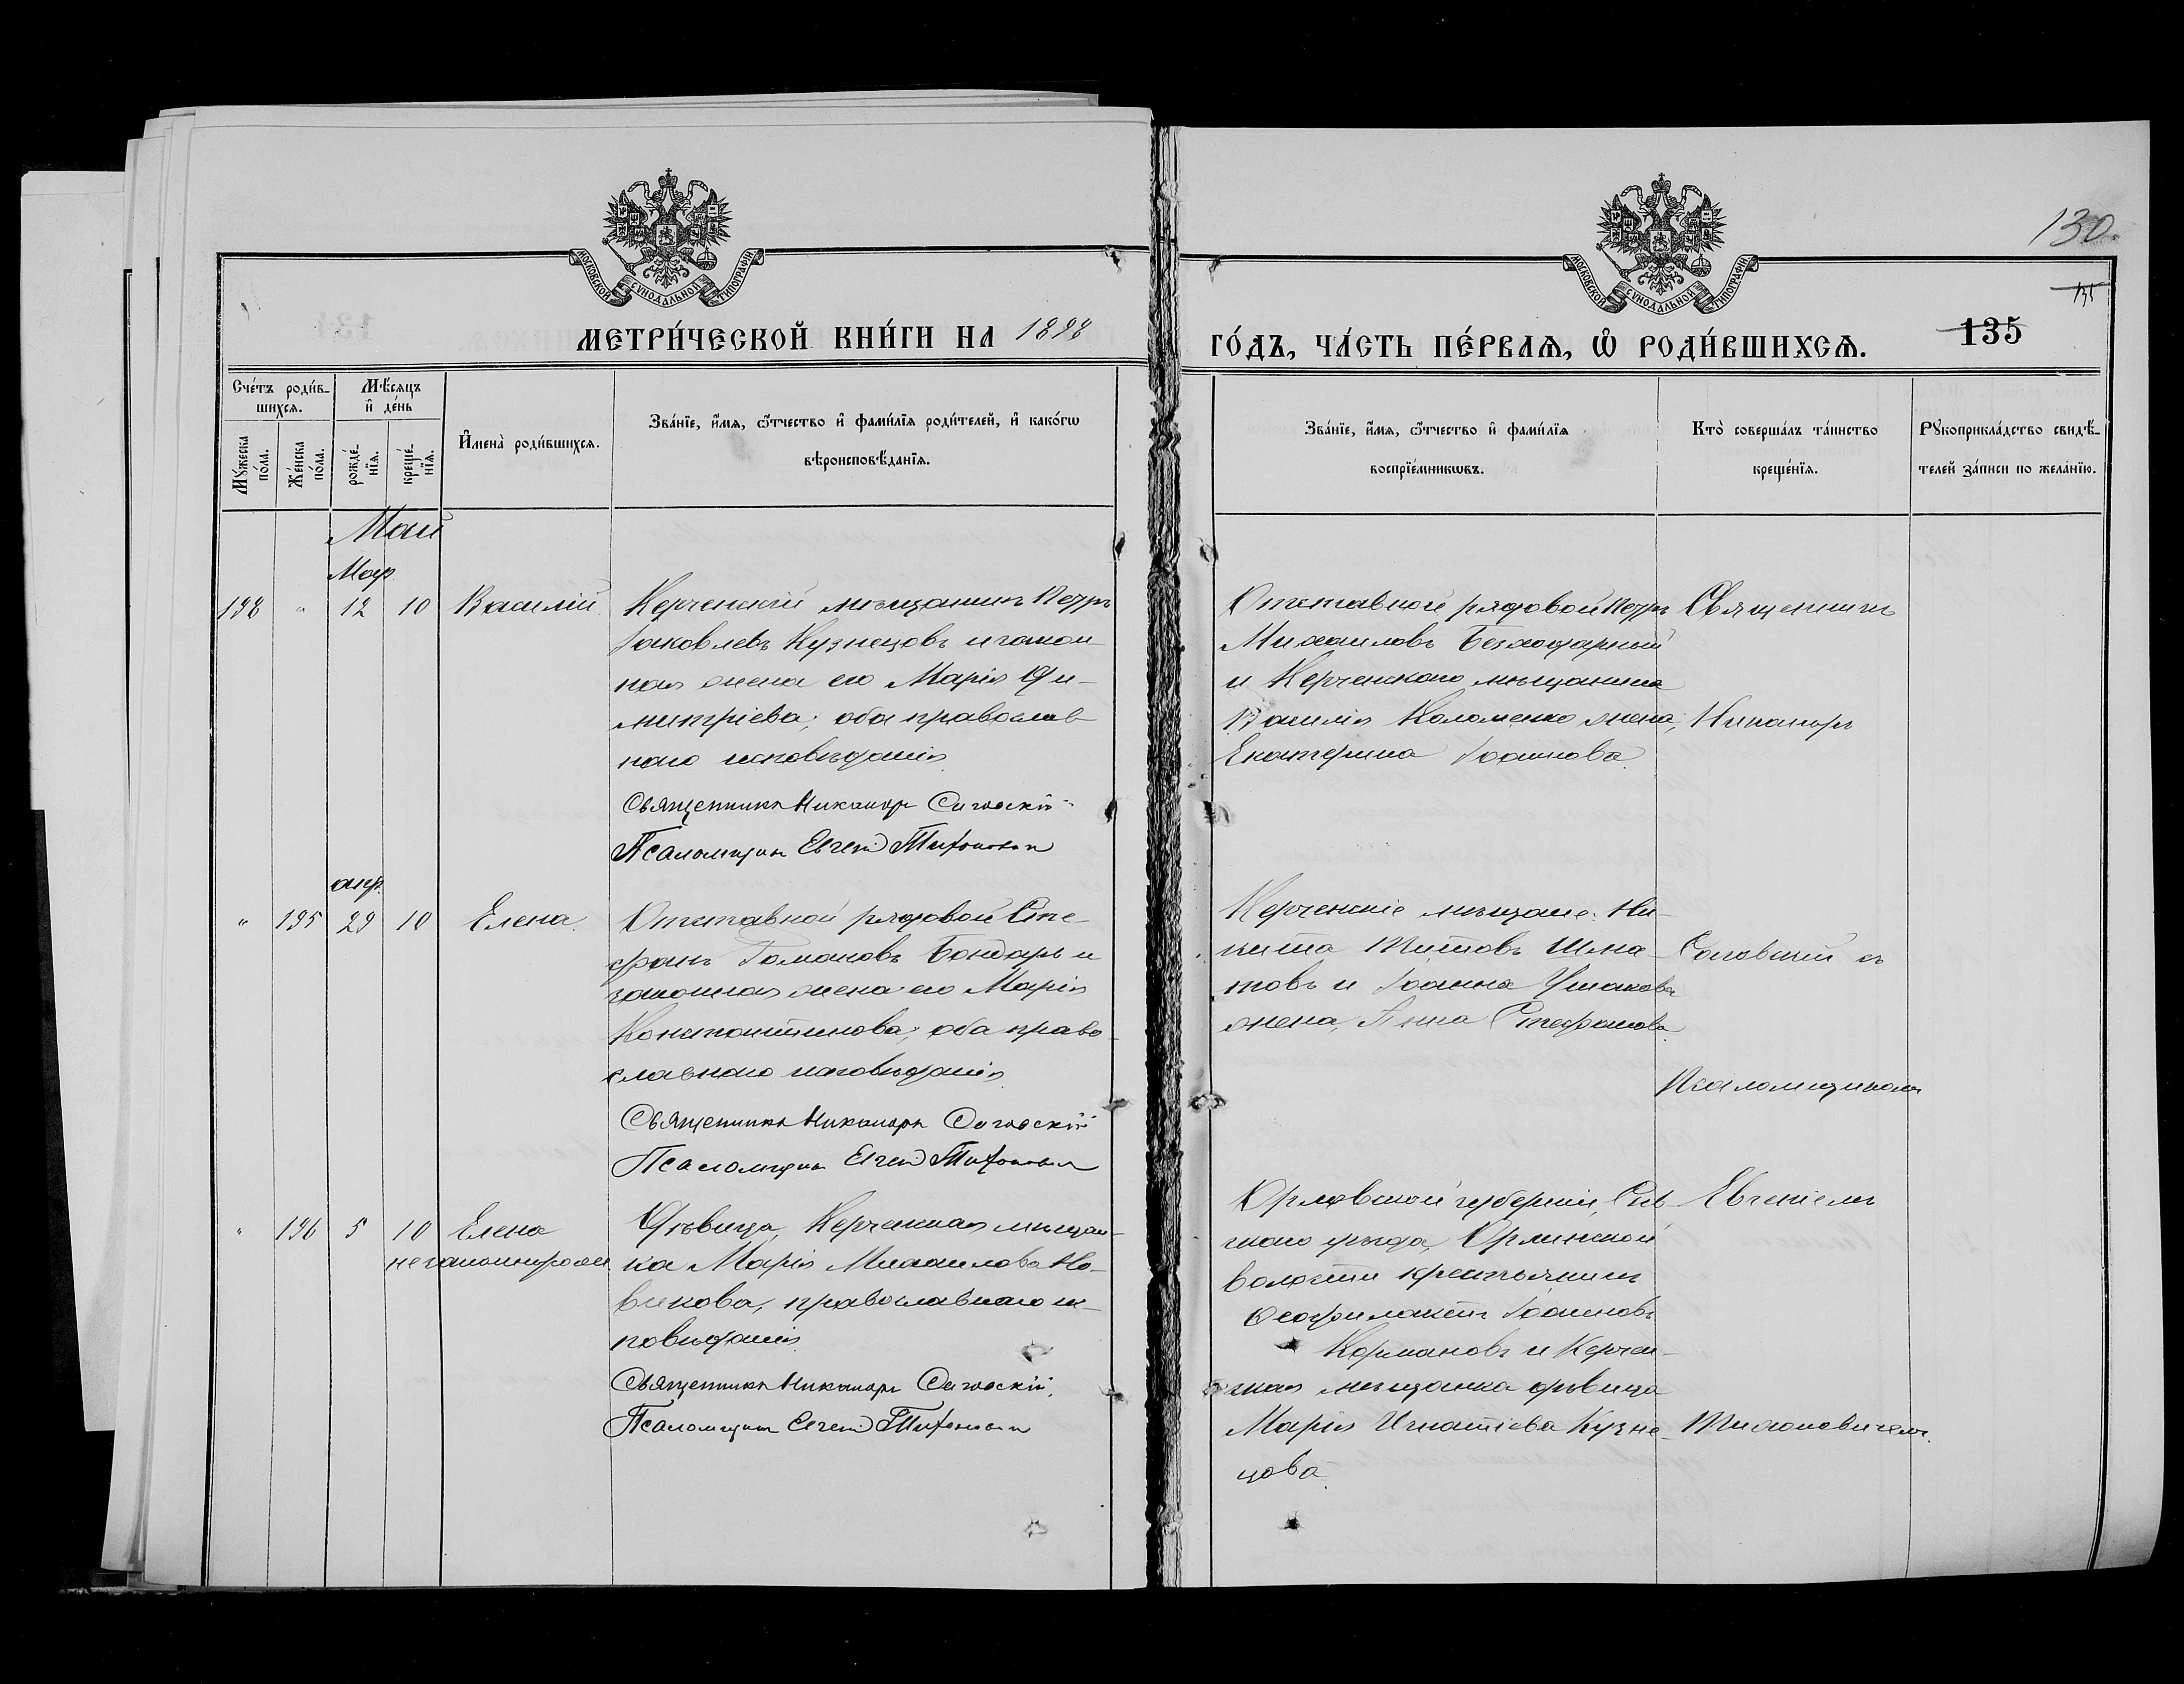 130.
МОСКОВСКОЙ СУНОДАЛЬНОЙ ТИПОГРАФІИ
МОСКОВСКОЙ СУНОДАЛЬНОЙ ТИПОГРАФІИ
МЕТРИ́ЧЕСКОЙ КНИ́ГИ НА 1898
ГО́ДЪ, ЧА́СТЬ ПЕ́РВАѦ, Ѡ҆ РОДИ́ВШИХСѦ.
135
135
Сче́тъ роди́в-
шихсѧ.
Мѣ́сѧцъ
и҆ де́нь
Мꙋ́жеска
по́ла.
Же́нска
по́ла.
рожде́-
нїѧ.
креще́-
нїѧ.
И҆мена̀ роди́вшихсѧ.
Зва́нїе, и҆́мѧ, ѻ҆́тчество и҆ фами́лїѧ роди́телей, и҆ како́гѡ
вѣроисповѣ́данїѧ.
Зва́нїе, и҆́мѧ, ѻ҆́тчество и҆ фами́лїѧ
воспрїе́мникѡвъ.
Кто̀ соверша́лъ та́инство
креще́нїѧ.
Рꙋкоприкла́дство свидѣ́-
телей за́писи по жела́нїю.
Май
Мар.
198 " 12 10 Василій.
Керченскій мѣщанинъ Петръ
Іаковлевъ Кузнецовъ и закон
ная жена его Марія Ди-
митріева; оба православ
наго исповѣданія.
Священникъ Никаноръ
Псаломщикъ Евгеній Тихоновичъ
Отставной рядовой Петръ
Михаиловъ
и Керченскаго мѣщанина
Василія Коломенко жена,
Екатерина Іоаннова.
Священникъ
Никаноръ
апр.
" 195 29 10 Елена.
Отставной рядовой Сте-
фанъ Романовъ Бондарь и
законная жена его Марія
Константинова; оба право-
славнаго исповѣданія.
Священникъ Никаноръ
Псаломщикъ Евгеній Тихоновичъ
Керченскіе мѣщане: Ни-
кита Титовъ
товъ и Іоанна Ушакова
жена, Анна Стефанова.
съ
Псаломщикомъ
" 196 5 10 Елена
незаконнорожд.
Дѣвица, Керченская мѣщан-
ка Марія Михаилова Но-
викова, православнаго ис-
повѣданія.
Священникъ Никаноръ
Псаломщикъ Евгеній Тихоновичъ
Орловской губерніи, Сѣв-
скаго уѣзда,
волости крестьянинъ
Ѳеофилактъ Іоанновъ
Кормановъ и Керчен-
ская мѣщанка дѣвица
Марія Игнатіева Кузне-
цова.
Евгеніемъ
Тихоновичемъ.